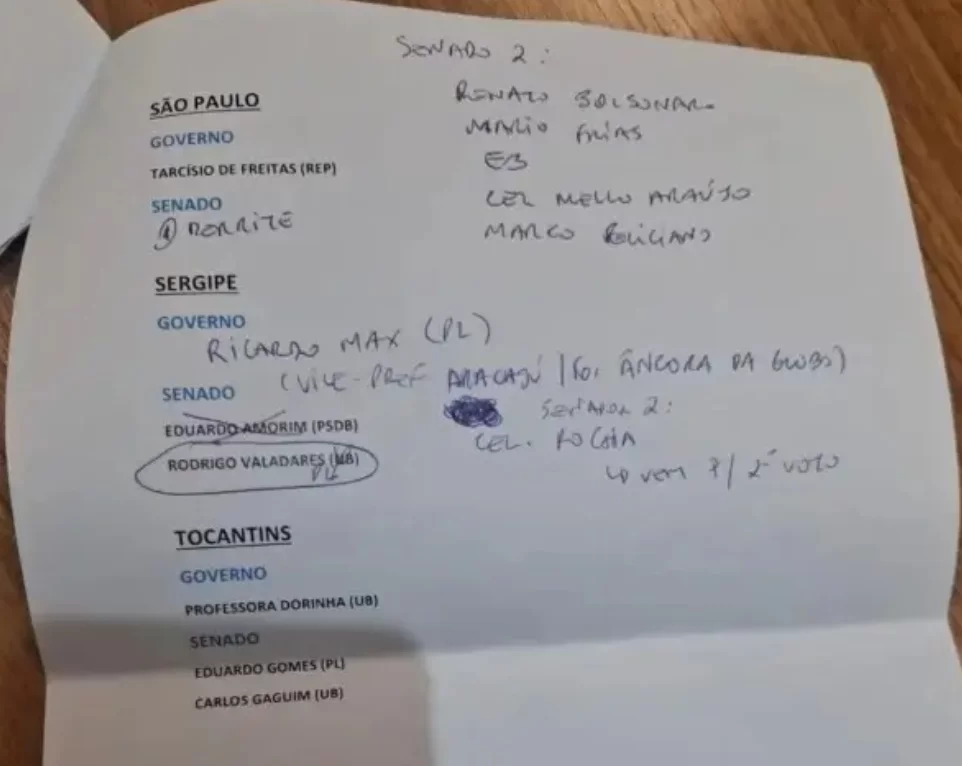 SENADO 2:
SÃO PAULO
RENATO BOLSONARO
GOVERNO
MARIO FRIAS
TARCÍSIO DE FREITAS (REP)
EB
SENADO
CEL MELLO ARAÚJO
① DERRITE
MARCO FELICIANO
SERGIPE
GOVERNO
RICARDO MAX (PL)
(VICE-PREF ARACAJÚ / FOI ÂNCORA DA GLOBO)
SENADO
EDUARDO AMORIM (PSDB)
SENADOR 2:
CEL. ROCHA
RODRIGO VALADARES (UB)
PL
VEM P/ 2º VOTO
TOCANTINS
GOVERNO
PROFESSORA DORINHA (UB)
SENADO
EDUARDO GOMES (PL)
CARLOS GAGUIM (UB)